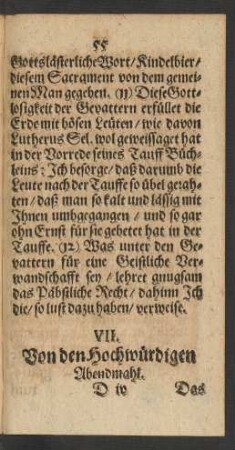 55
Gottslästerliche Wort / Kindelbier /
diesem Sacrament von dem gemei-
nen Man gegeben. (11) Diese Gott-
losigkeit der Gevattern erfüllet die
Erde mit bösen Leüten / wie davon
Lutherus Sel. wol geweissaget hat
in der Vorrede seines Tauff Büch-
leins: Ich besorge / daß darumb die
Leute nach der Tauffe so übel gerah-
ten / daß man so kalt und lässig mit
Ihnen umbgegangen / und so gar
ohn Ernst für sie gebetet hat in der
Tauffe. (12) Was unter den Ge-
vattern für eine Geistliche Ver-
wandschafft sey / lehret gnugsam
das Päbstliche Recht / dahinn Ich
die / so lust dazu haben / verweise.
VII.
Von den Hochwürdigen
Abendmahl.
D iv Das